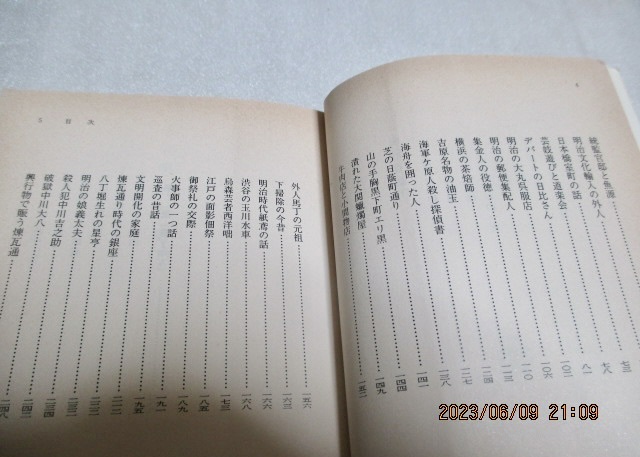 4
統監官邸と魚源
明治文化輸入の外人
日本橋室町の話
芸妓遊びと道楽会
デパートの日比さん
明治の大丸呉服店
明治の郵便集配人
集金人の殺徳
横浜の茶焙師
吉原名物の油玉
海軍ケ原人殺し探偵書
海舟を囲った人
芝の日蔭町通り
山の手胸黒下町エリ黒
潰れた大関蠟燭屋
牛肉店と小間物店
七三
七八
八一
一〇二
一〇六
一一〇
一二七
一三八
一四一
一四四
一四九
一五二
5 目次
外人馬丁の元祖 一五六
下掃除の今昔 一六三
明治時代紙鳶の話 一六六
渋谷の玉川水車 一六八
烏森芸者西洋咄 一七三
江戸の面影佃祭 一八五
御祭礼の交際 一八八
火事師の一つ話 一八九
巡査の昔話 一九一
文明開化の家庭 一九五
煉瓦通り時代の銀座
八丁堀生れの星亨
明治の娘義太夫
殺人犯中川吉之助
破獄中川大八
興行物で賑う煉瓦通
2023/06/09 21:09